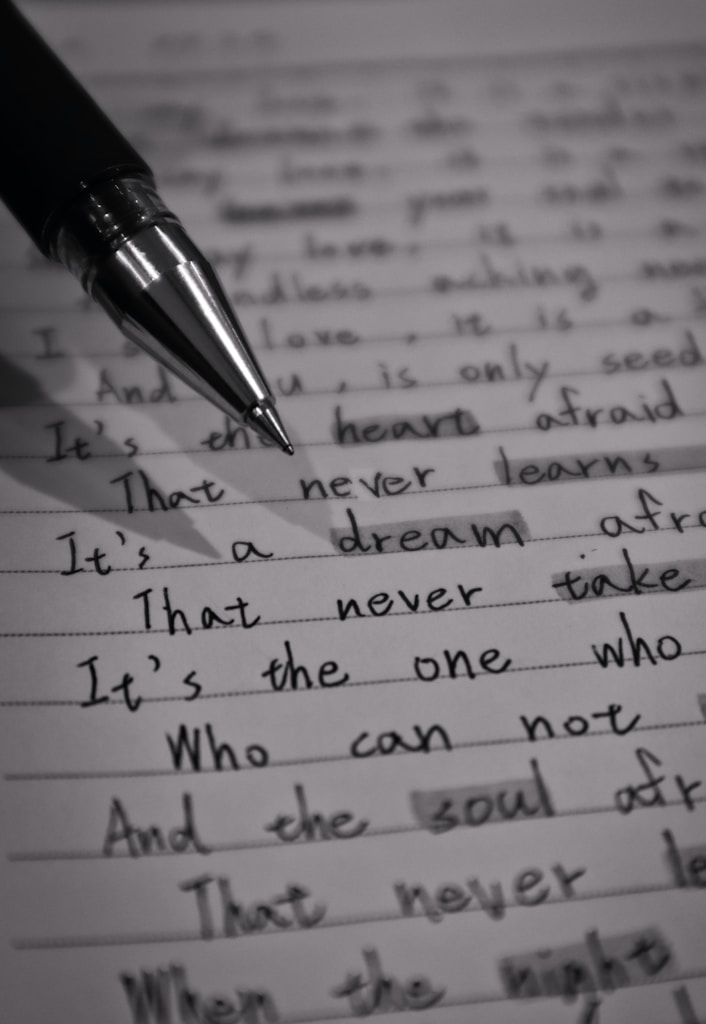 love. it is a
love. it is a
your soul
love, it is a
ndless aching
I love, it is a
And u, is only seed
It's the heart afraid
That never learns
It's a dream afr
That never take
It's the one who
Who can not
And the soul afr
That never le
When the night